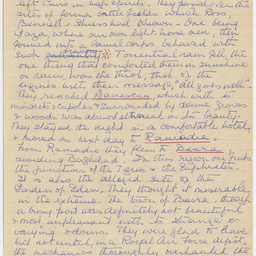 left Cairo in high spirits. They passed over the
sites of former battle fields where Romani,
Beersheba & Sheria had shown. One being
Gaza, where our own light horse men, then
formed into a camel corps behaved with
such Torrential rain fell the
one thing that comforted them in sunshine
or rain was the throb of the
engines with their message "all goes well".
They reached Damascus, which with its
minarets & cupolas & surrounded by dense groves
& woods was almost ethereal in its beauty.
They stayed the night in a comfortable hotel,
& moved on next day to Ramadie.
From Ramadie they flew to Basra
avoiding Baghdad. In this region one finds
the junction of the Tigris & the Euphrates.
It is also the alleged site of the
Garden of Eden. They thought it miserable
in the extreme. The town of Basra, though
a busy port was definitely not beautiful
& most unpleasant with its strange or
varying odours. They were glad to leave
but not until, in a Royal Air Force depot,
the mechanics thoroughly overhauled the